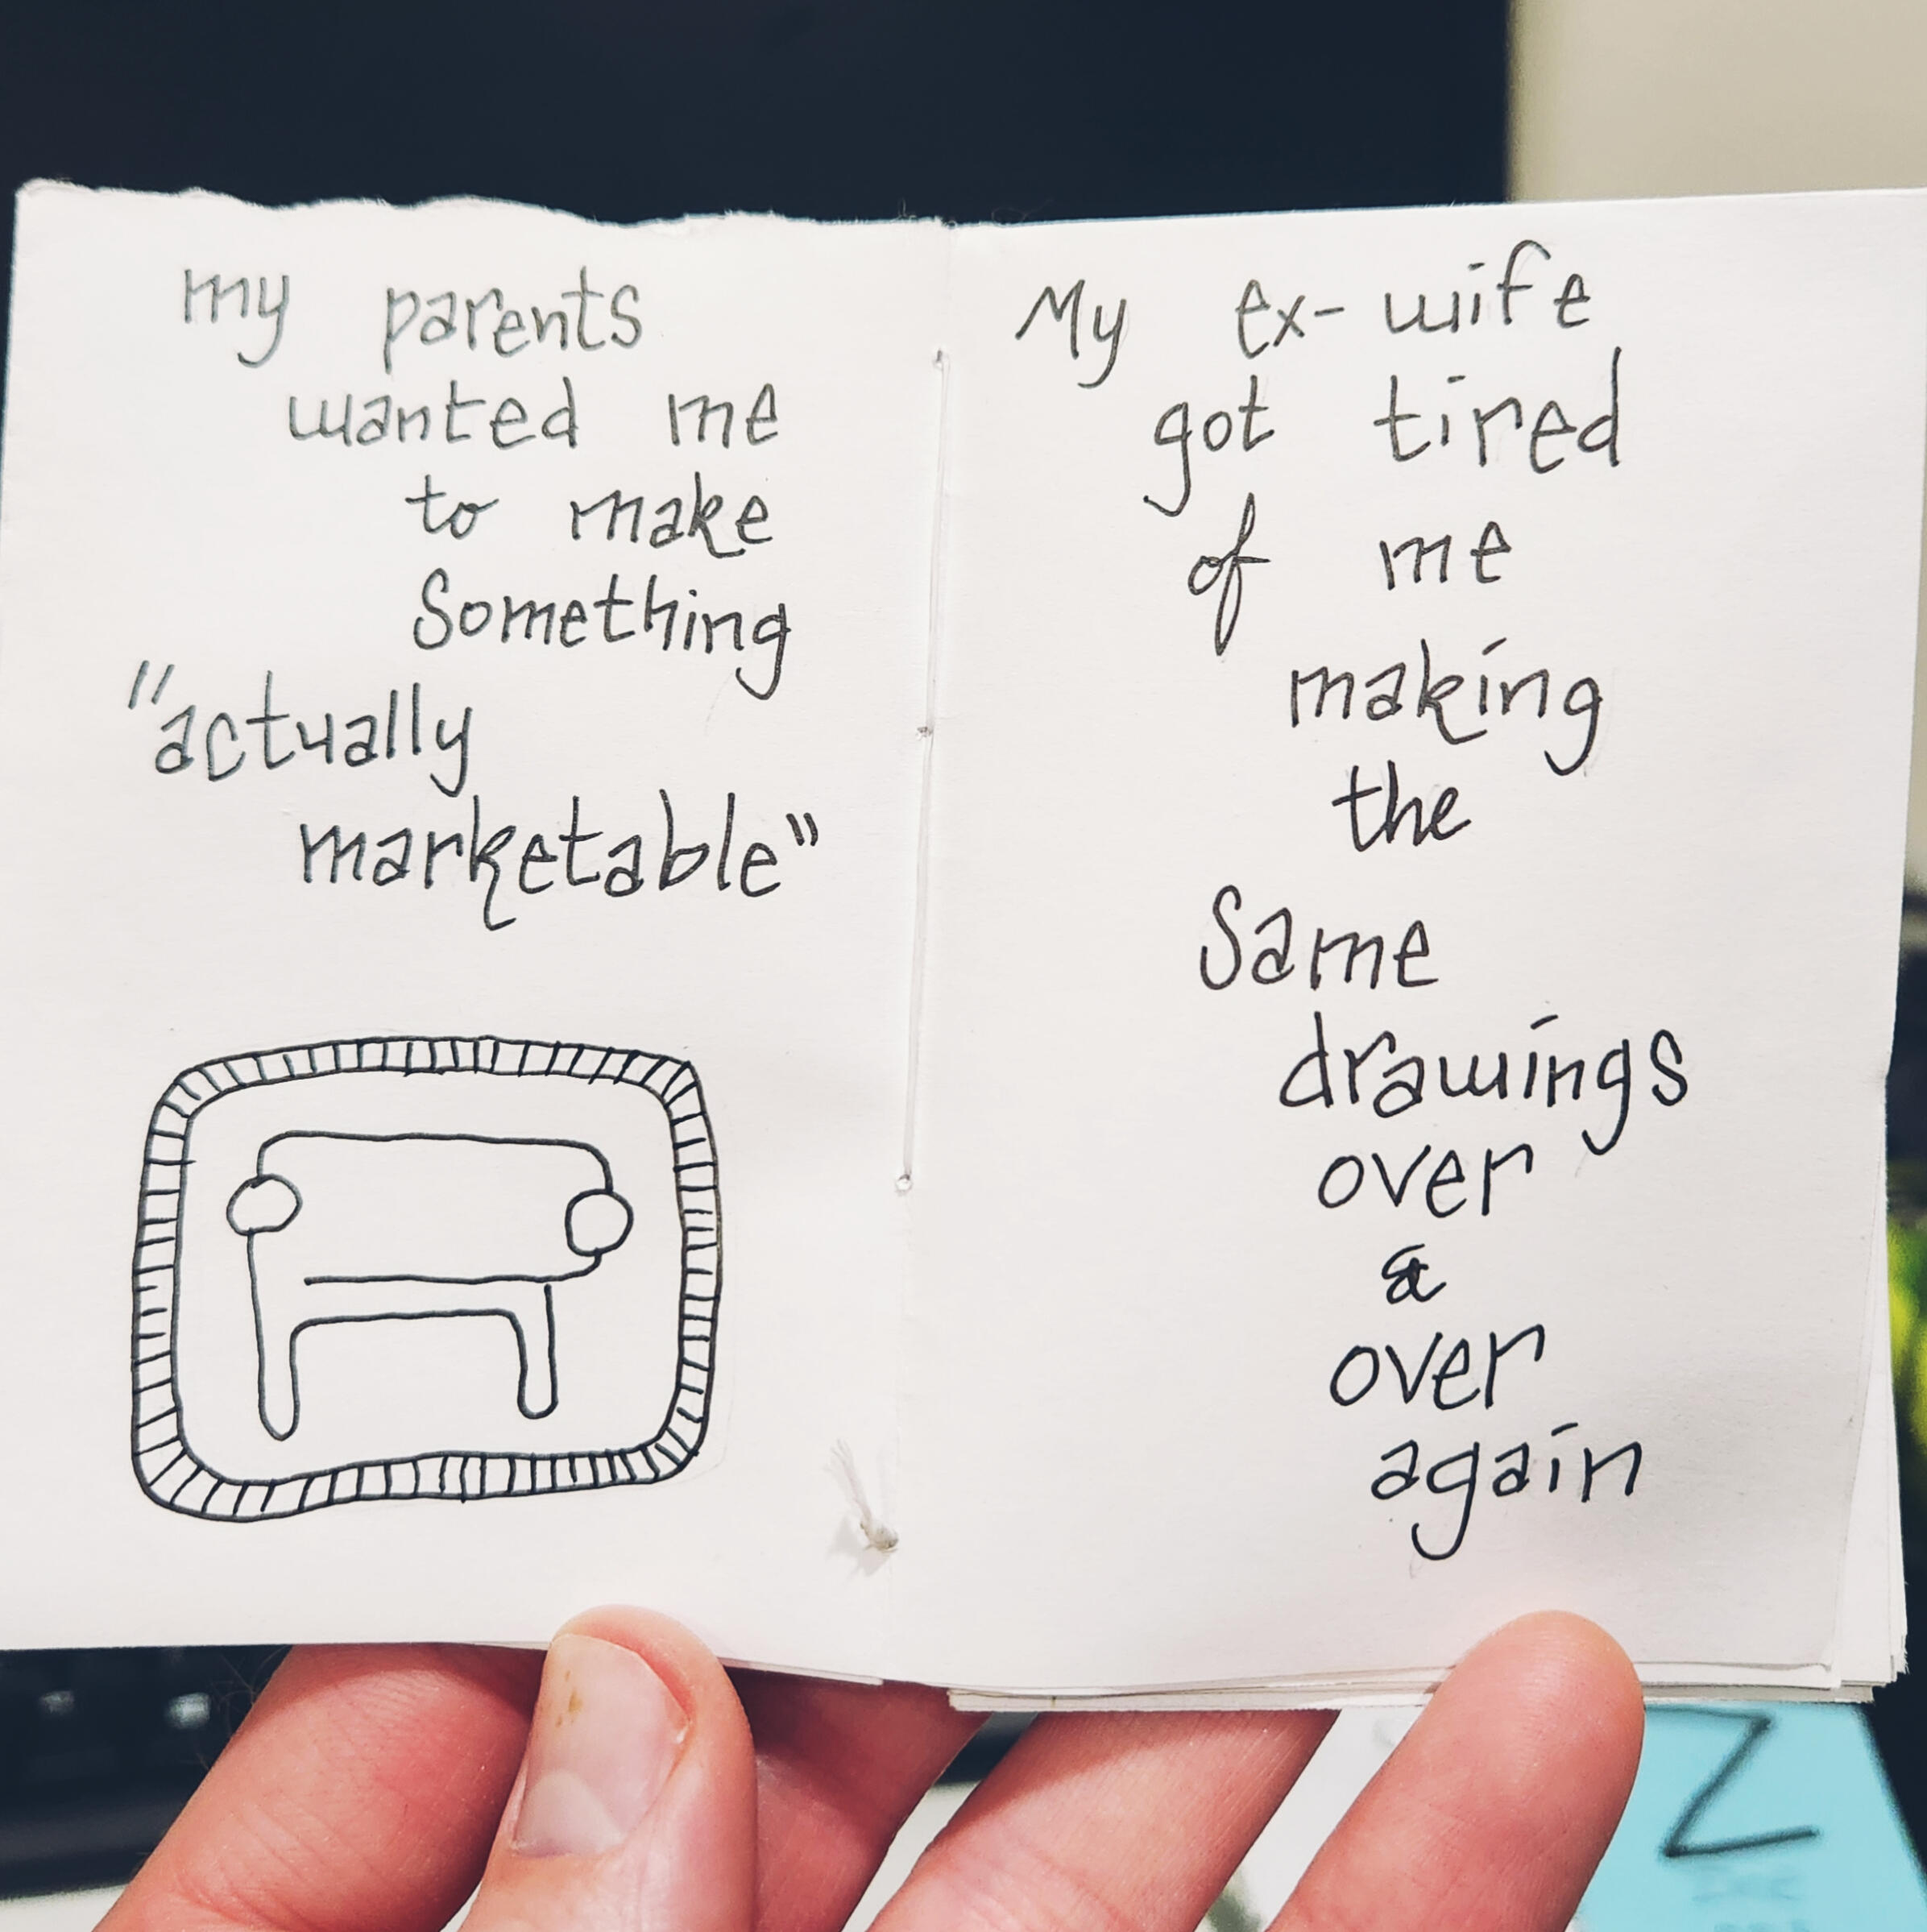 my parents
wanted me
to make
Something
"actually
marketable"
My ex-wife
got tired
of me
making
the
Same
drawings
over
&
over
again
Z